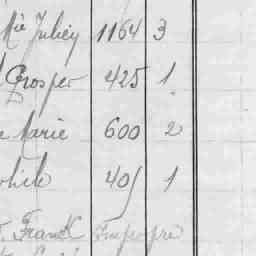 Mie Julien 1164 3
Prosper 425 1
e Marie 600 2
ohile 405 1
Franck Impropre